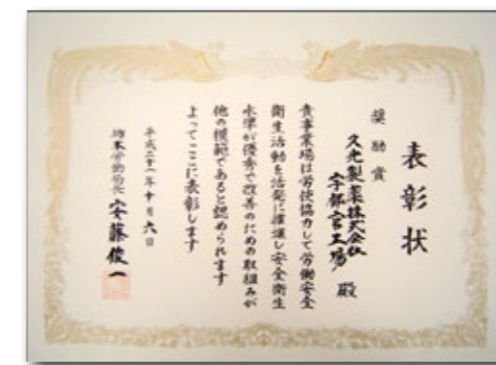 表彰状
奨励賞
久光製薬株式会社
宇都宮工場 殿
貴事業場は労使協力して労働安全
衛生活動を活発に推進し安全衛生
水準が優秀で改善のための取組みが
他の模範であると認められます
よってここに表彰します
平成二十一年十月六日
栃木労働局長 安藤俊一